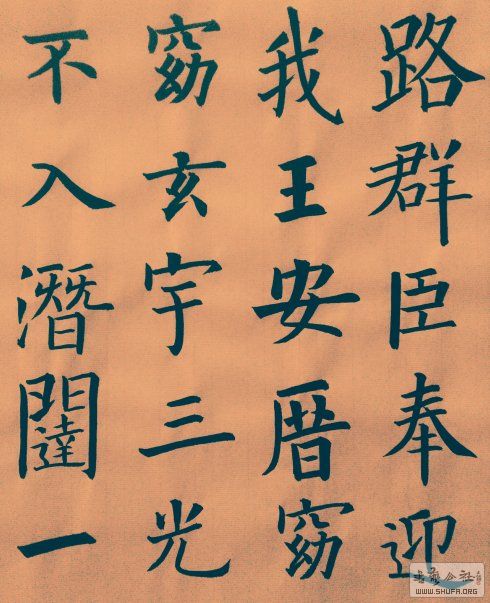 路群臣奉迎
我王安厝窈
窈玄宇三光
不入潛闥一
WWW.SHUFA.ORG